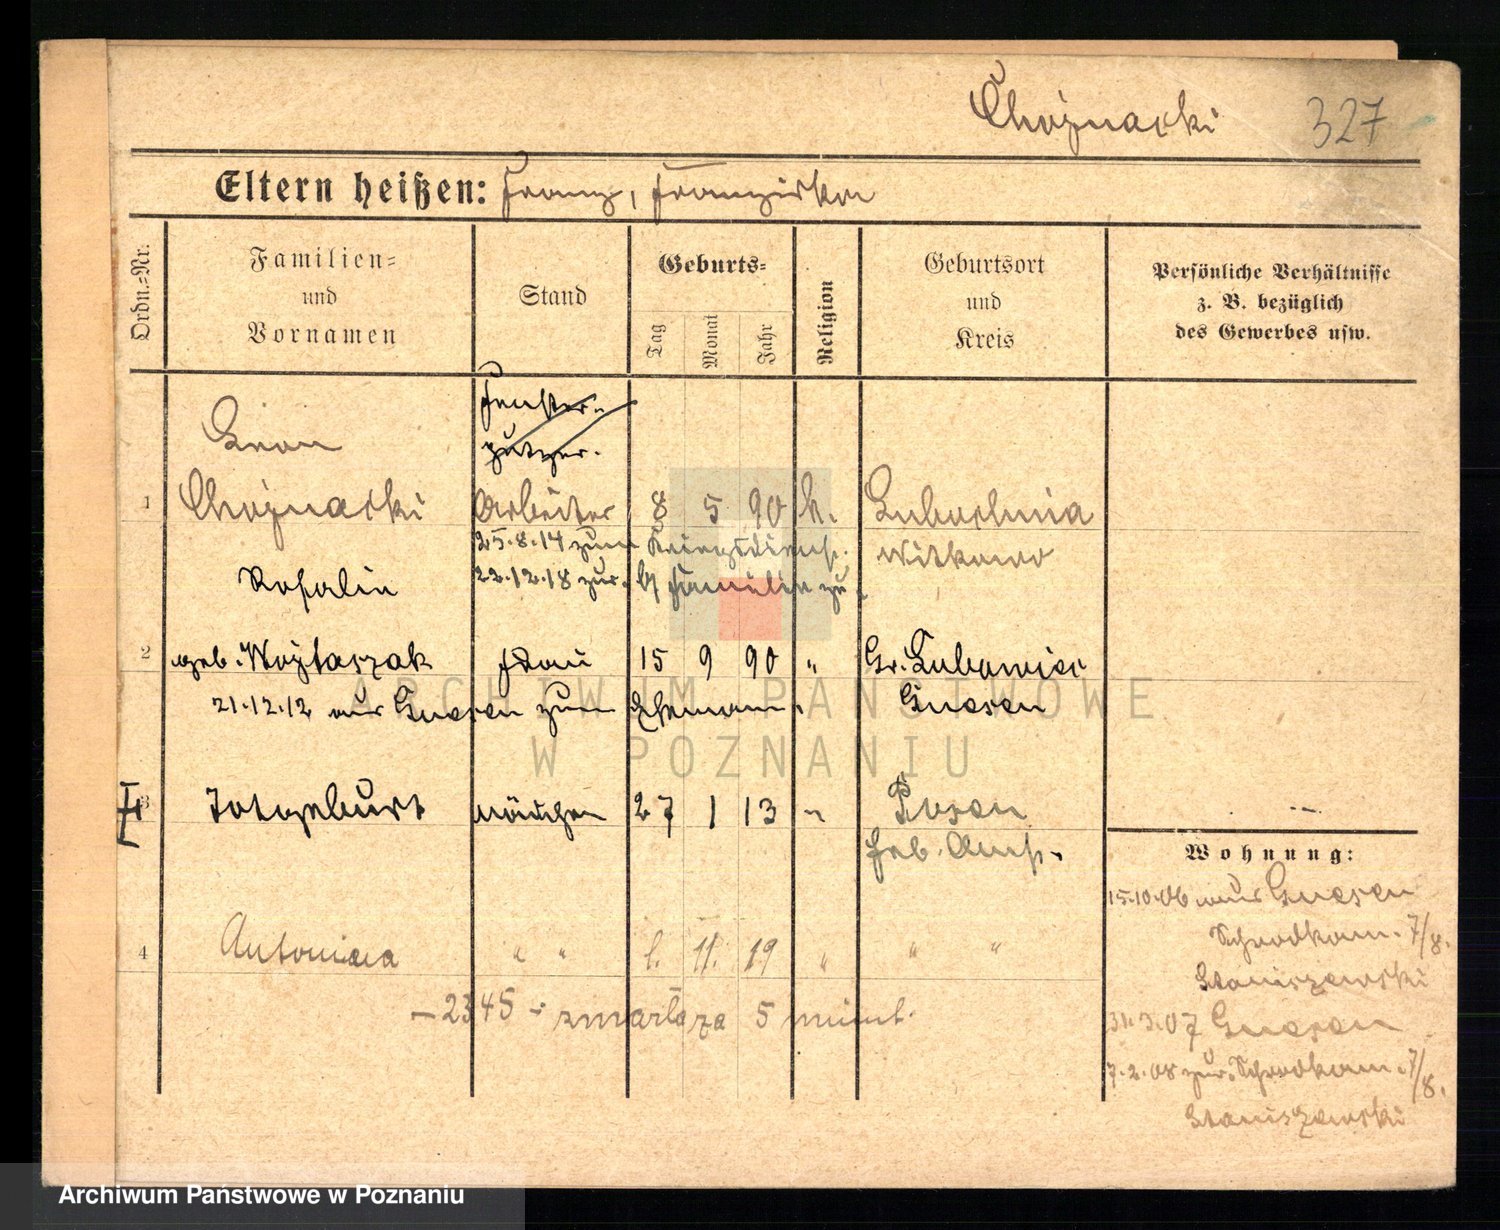 Chojnacki 327
Eltern heißen: Franz, Franziska
Ordn.=Nr.
Familien=
und
Vornamen
Stand
Geburts=
Tag
Monat
Jahr
Religion
Geburtsort
und
Kreis
Persönliche Verhältnisse
z. B. bezüglich
des Gewerbes usw.
Fenster-
putzer.
Leon
1 Chojnacki Arbeiter 8 5 90 k. Lubochnia
25.8.14 zum Kriegsdienst. Witkowo
Rosalie 22.12.18 zur. Familie
2 geb. Wojtaszak Frau 15 9 90 " Gr. Lubowice
21.12.12 aus Gnesen zum Ehemann. Gnesen
3 Totgeburt Mädchen 27 1 13 " Posen
Geb. Anst.
Wohnung:
15.10.06 aus Gnesen
Schrodkam. 7/8.
Staniszewski
4 Antonina " " 1. 11. 19 " " "
-2345 - zmarła za 5 minut.
31.3.07 Gnesen
7.2.08 zur. Schrodkam. 7/8.
Staniszewski
ARCHIWUM PAŃSTWOWE
W POZNANIU
Archiwum Państwowe w Poznaniu